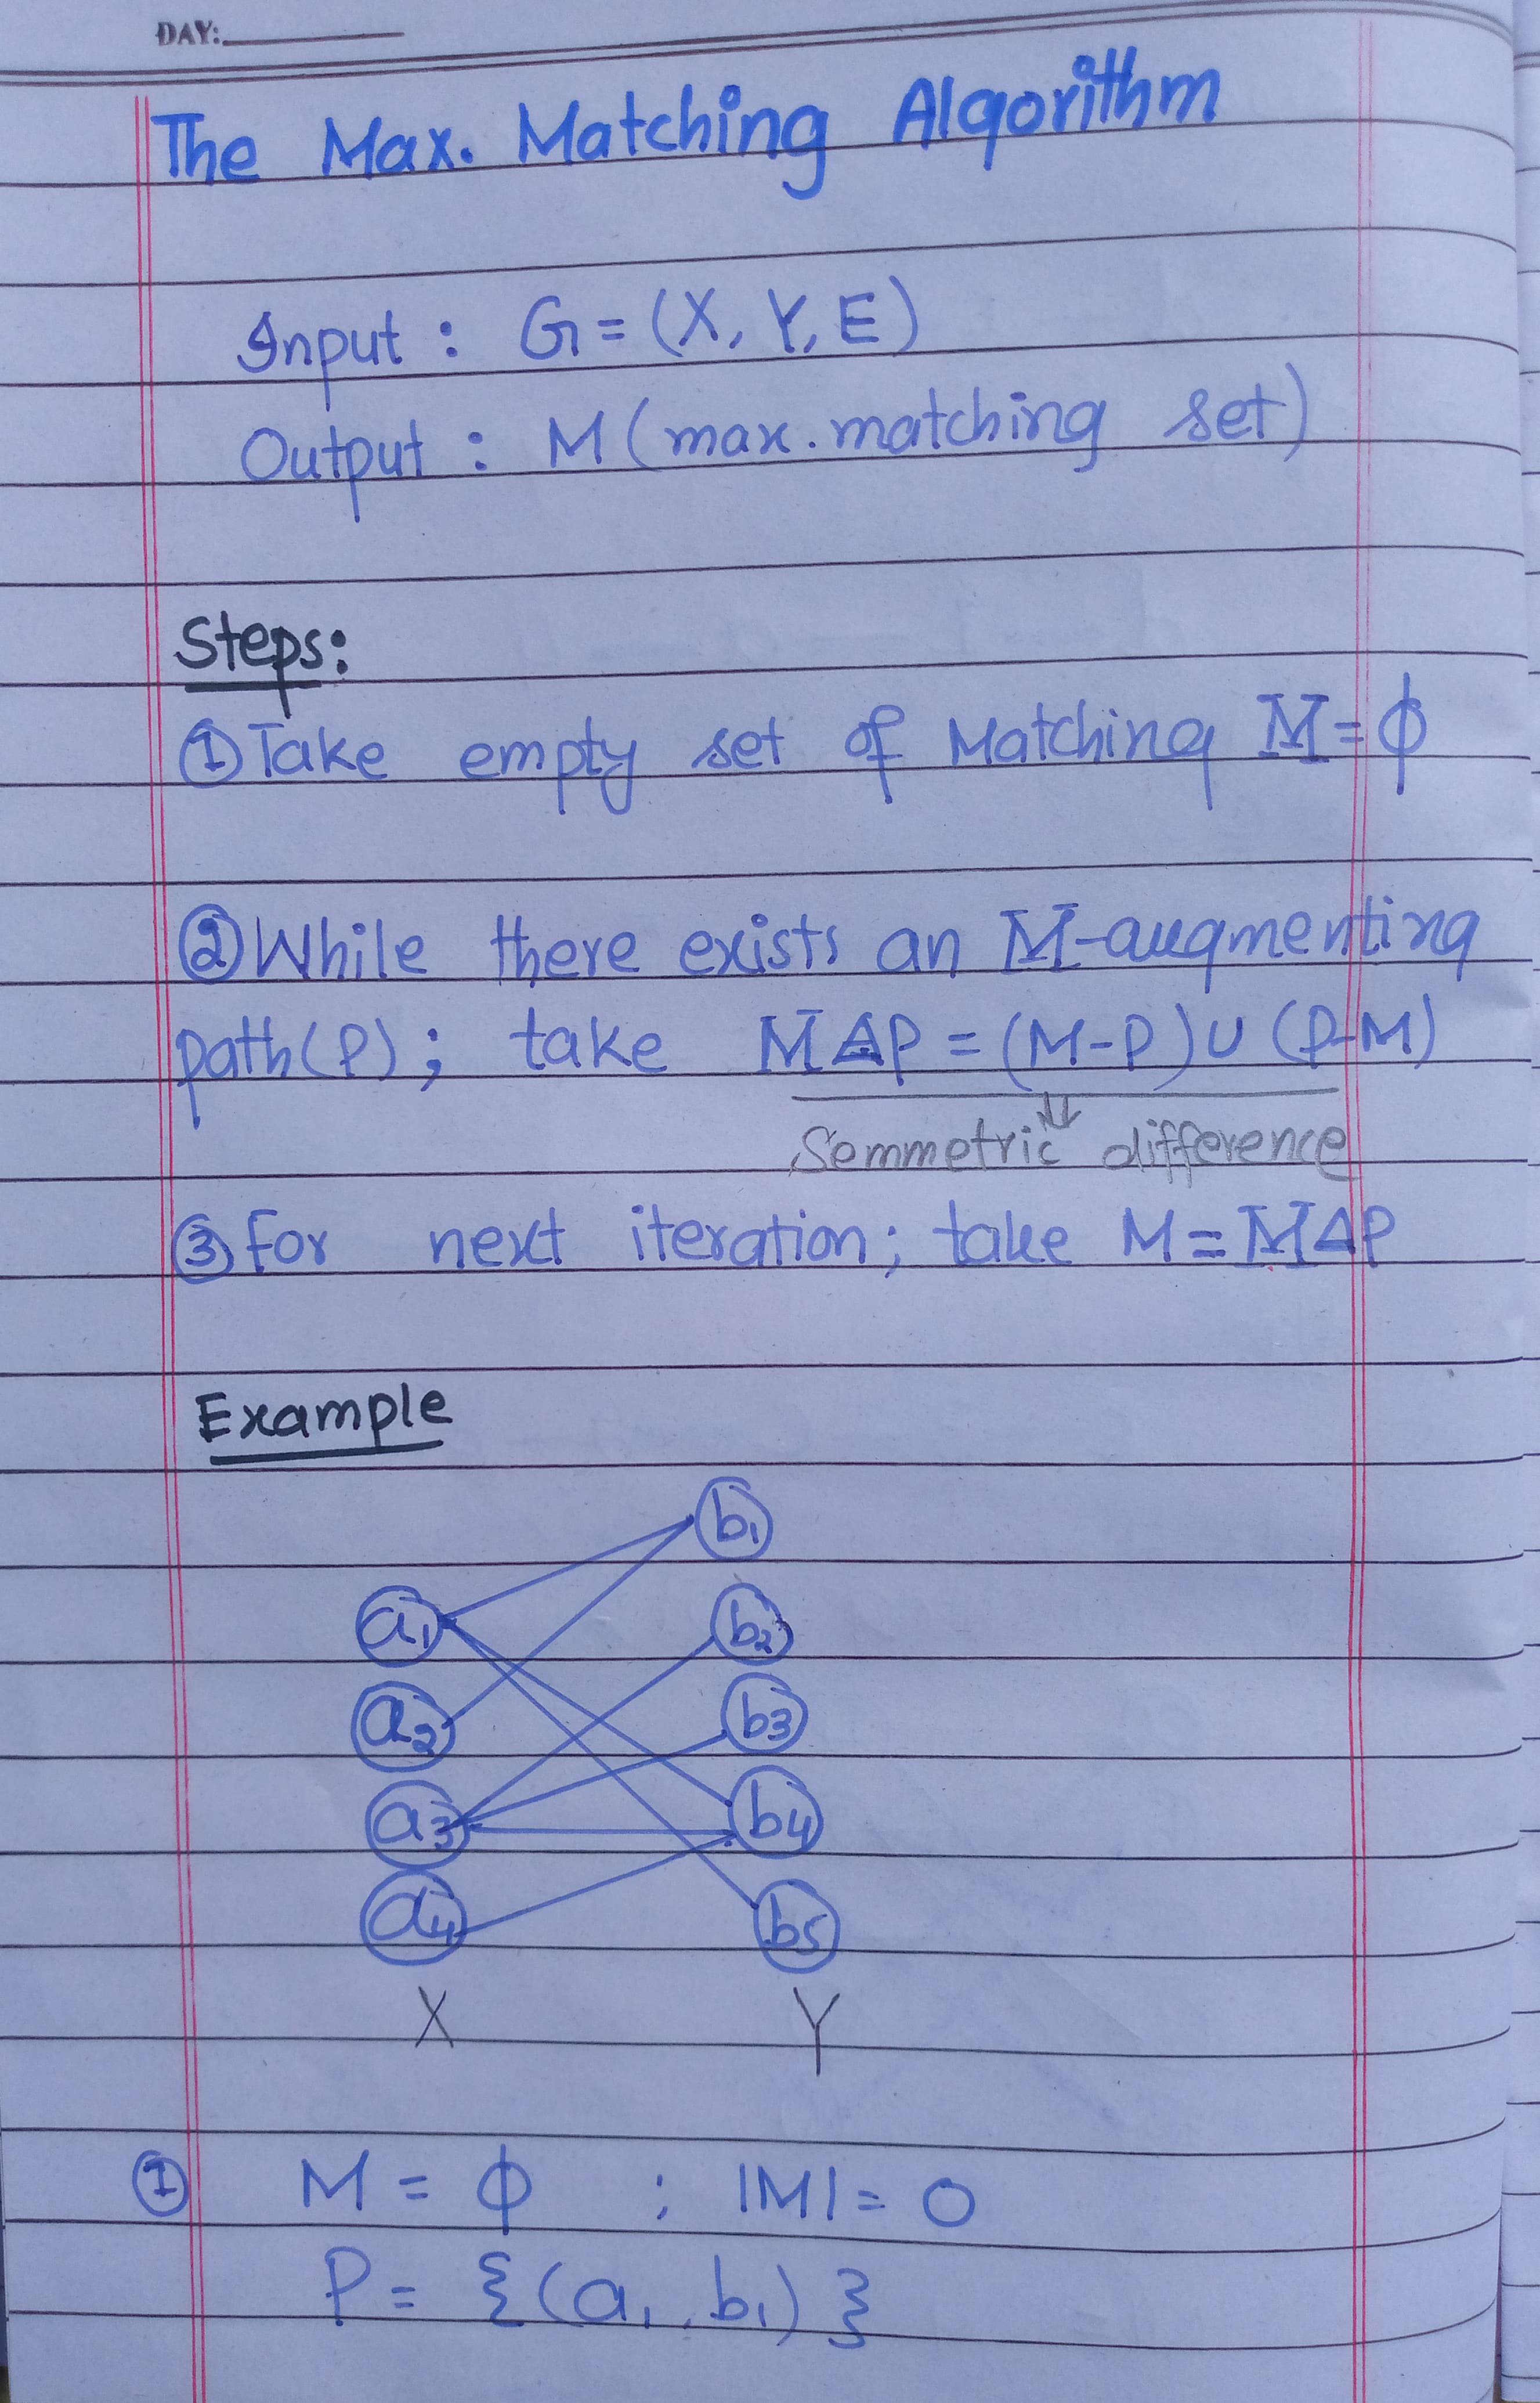 DAY:
The Max. Matching Algorithm
Input : G = (X, Y, E)
Output : M (max. matching set)
Steps:
① Take empty set of Matching M = ϕ
② While there exists an M-augmenting
path(P); take M Δ P = (M-P) ∪ (P-M)
Semmetric difference
③ For next iteration; take M = M Δ P
Example
b1
a1 b2
a2 b3
a3 b4
a4 b5
X Y
① M = ϕ ; |M| = 0
P = {(a1, b1)}